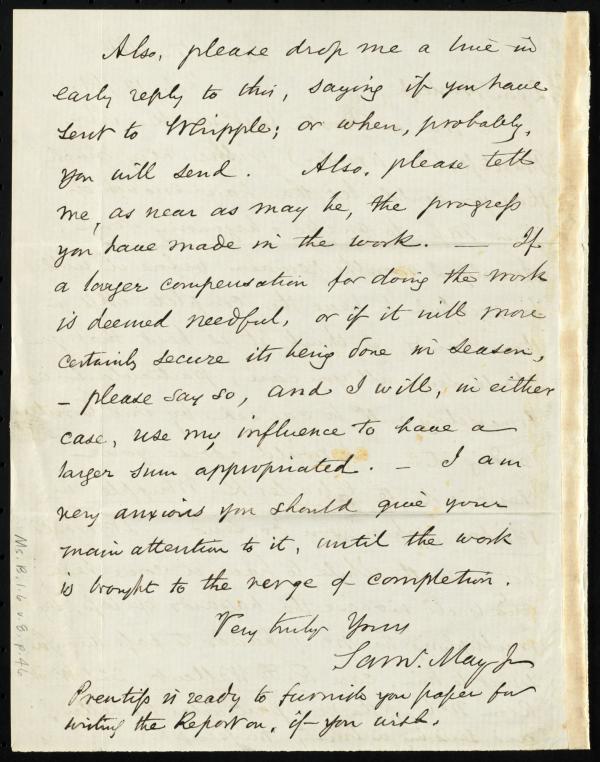 Also, please drop me a line in
early reply to this, saying if you have
sent to Whipple; or when, probably,
you will send. Also, please tell
me, as near as may be, the progress
you have made in the work. — If
a larger compensation for doing the work
is deemed needful, or if it will more
certainly secure its being done in season,
– please say so, and I will, in either
case, use my influence to have a
larger sum appropriated. – I am
very anxious you should give your
main attention to it, until the work
is brought to the verge of completion.
Very truly Yours
Saml. May Jr
Prentiss is ready to furnish you paper for
writing the Report on, if you wish.
Ms. B.1.6 v.8, p.46